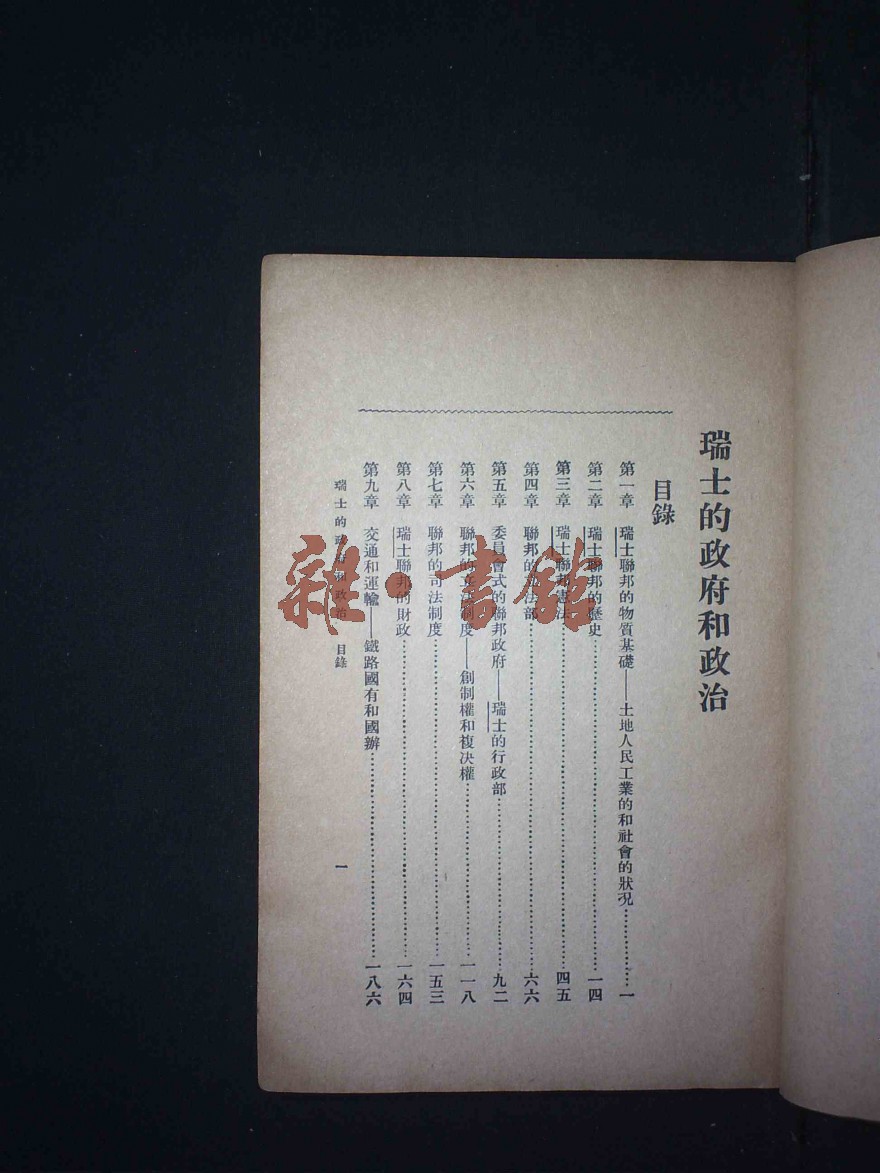 瑞士的政府和政治
目錄
第一章 瑞士聯邦的物質基礎——土地人民工業的和社會的狀況…………一
第二章 瑞士聯邦的歷史…………一四
第三章 瑞士聯邦憲法…………四五
第四章 聯邦的立法部…………六六
第五章 委員會式的聯邦政府——瑞士的行政部…………九二
第六章 聯邦的立法制度——創制權和複決權…………一一八
第七章 聯邦的司法制度…………一五三
第八章 瑞士聯邦的財政…………一六四
第九章 交通和運輸——鐵路國有和國辦…………一八六
瑞士的政府和政治 目錄 一
雜·書館